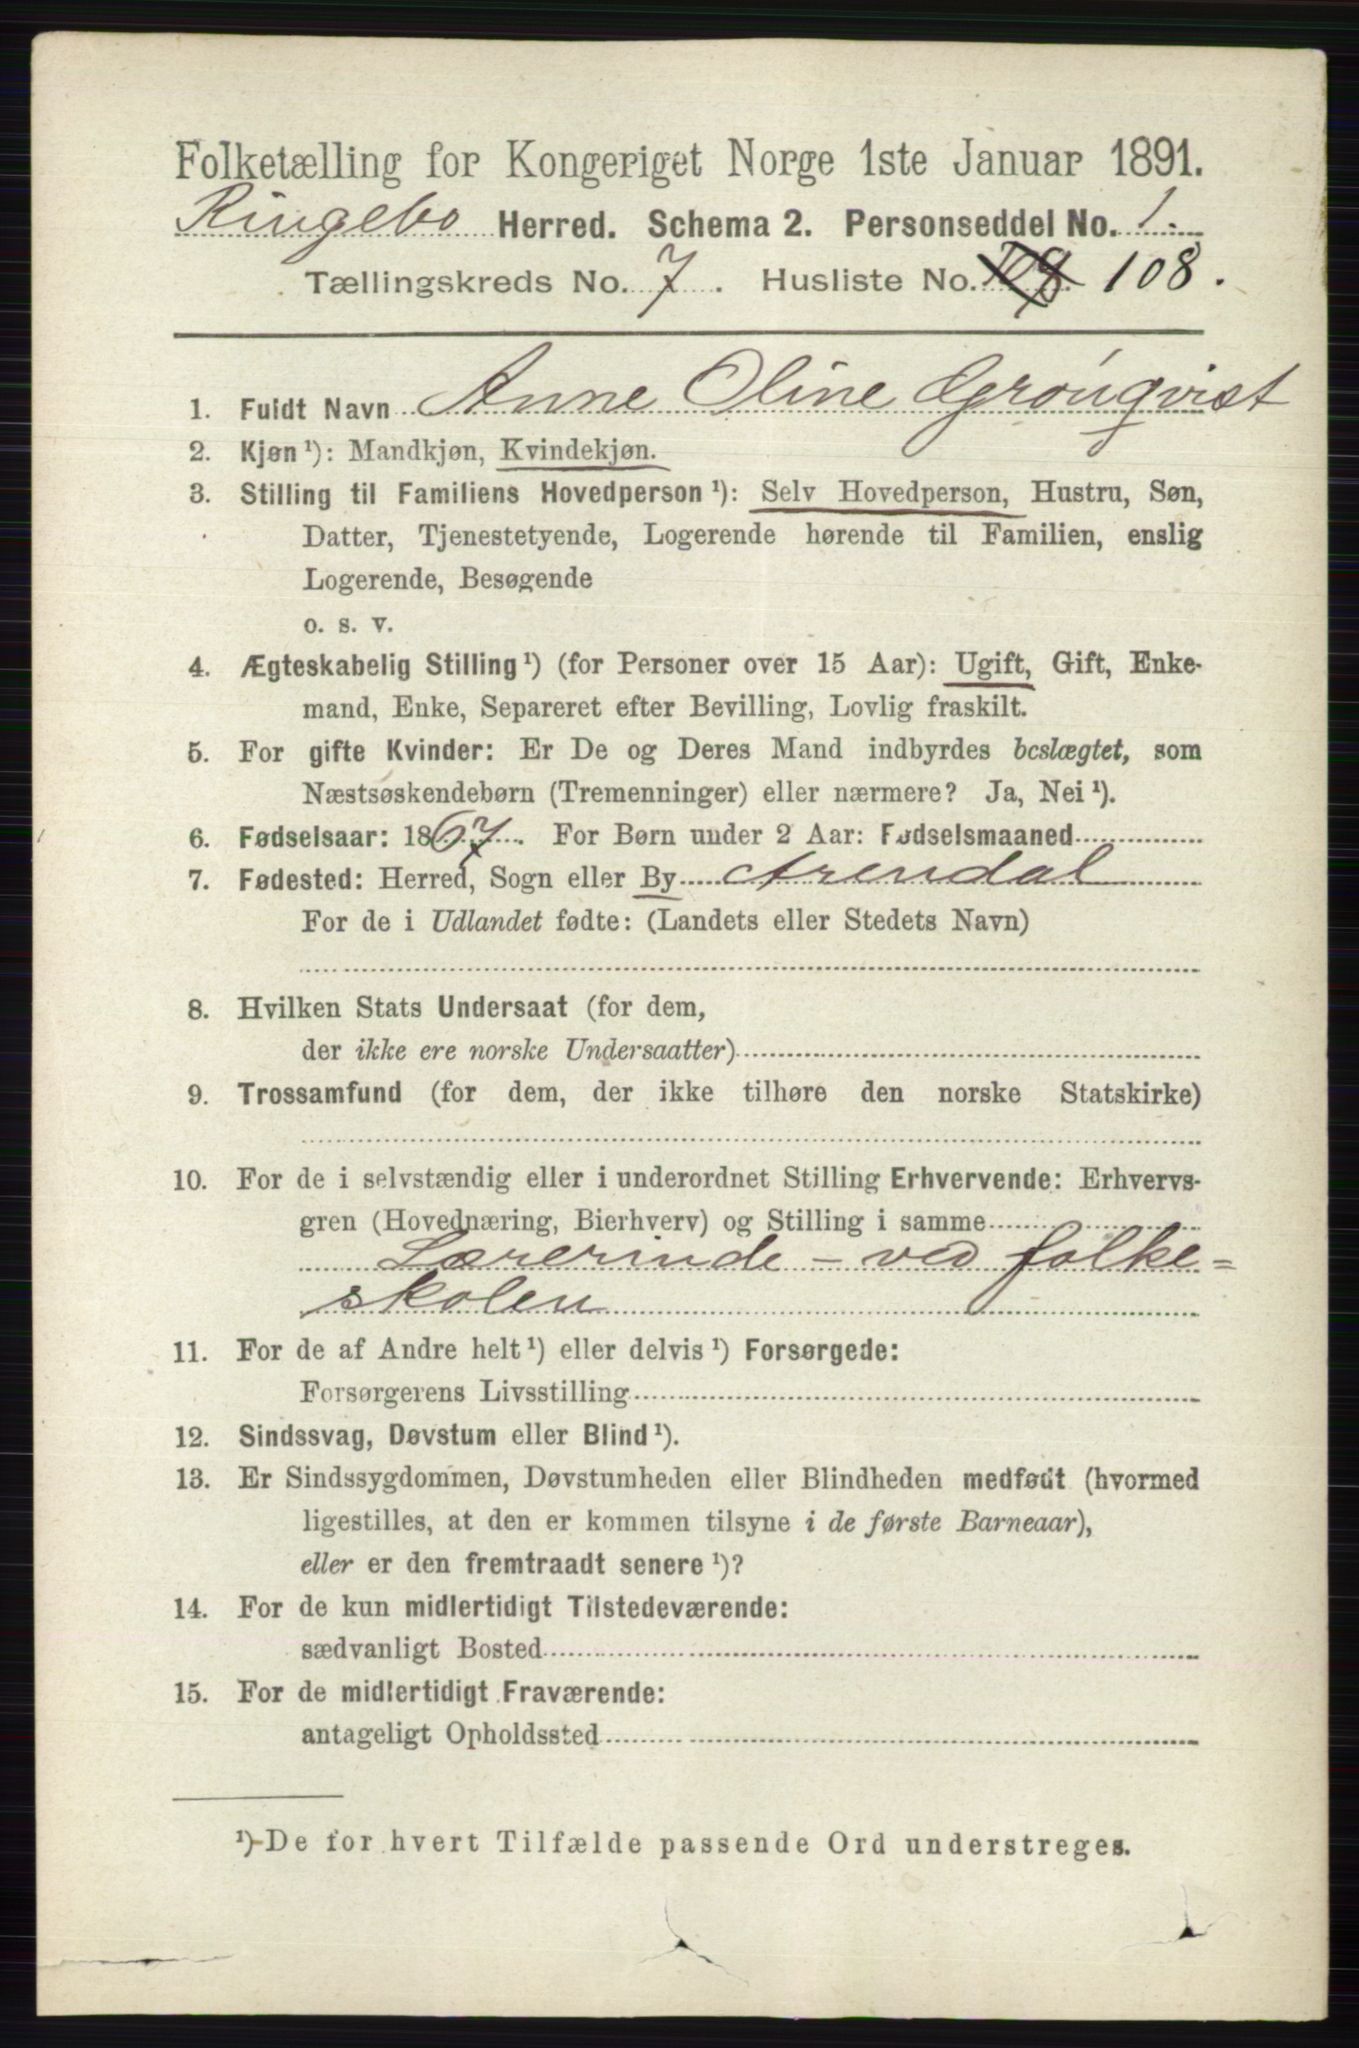 Folketælling for Kongeriget Norge 1ste Januar 1891.
Ringebo Herred. Schema 2. Personseddel No. 1.
Tællingskreds No. 7. Husliste No. 108.
1. Fuldt Navn Anne Oline Grønqvist
2. Kjøn ¹): Mandkjøn, Kvindekjøn.
3. Stilling til Familiens Hovedperson ¹): Selv Hovedperson, Hustru, Søn,
Datter, Tjenestetyende, Logerende hørende til Familien, enslig
Logerende, Besøgende
o. s. v.
4. Ægteskabelig Stilling ¹) (for Personer over 15 Aar): Ugift, Gift, Enke-
mand, Enke, Separeret efter Bevilling, Lovlig fraskilt.
5. For gifte Kvinder: Er De og Deres Mand indbyrdes beslægtet, som
Næstsøskendebørn (Tremenninger) eller nærmere? Ja, Nei ¹).
6. Fødselsaar: 1867. For Børn under 2 Aar: Fødselsmaaned
7. Fødested: Herred, Sogn eller By Arendal
For de i Udlandet fødte: (Landets eller Stedets Navn)
8. Hvilken Stats Undersaat (for dem,
der ikke ere norske Undersaatter)
9. Trossamfund (for dem, der ikke tilhøre den norske Statskirke)
10. For de i selvstændig eller i underordnet Stilling Erhvervende: Erhvervs-
gren (Hovednæring, Bierhverv) og Stilling i samme
Lærerinde - ved folke=
skolen
11. For de af Andre helt ¹) eller delvis ¹) Forsørgede:
Forsørgerens Livsstilling
12. Sindssvag, Døvstum eller Blind ¹).
13. Er Sindssygdommen, Døvstumheden eller Blindheden medfødt (hvormed
ligestilles, at den er kommen tilsyne i de første Barneaar),
eller er den fremtraadt senere ¹)?
14. For de kun midlertidigt Tilstedeværende:
sædvanligt Bosted
15. For de midlertidigt Fraværende:
antageligt Opholdssted
¹) De for hvert Tilfælde passende Ord understreges.